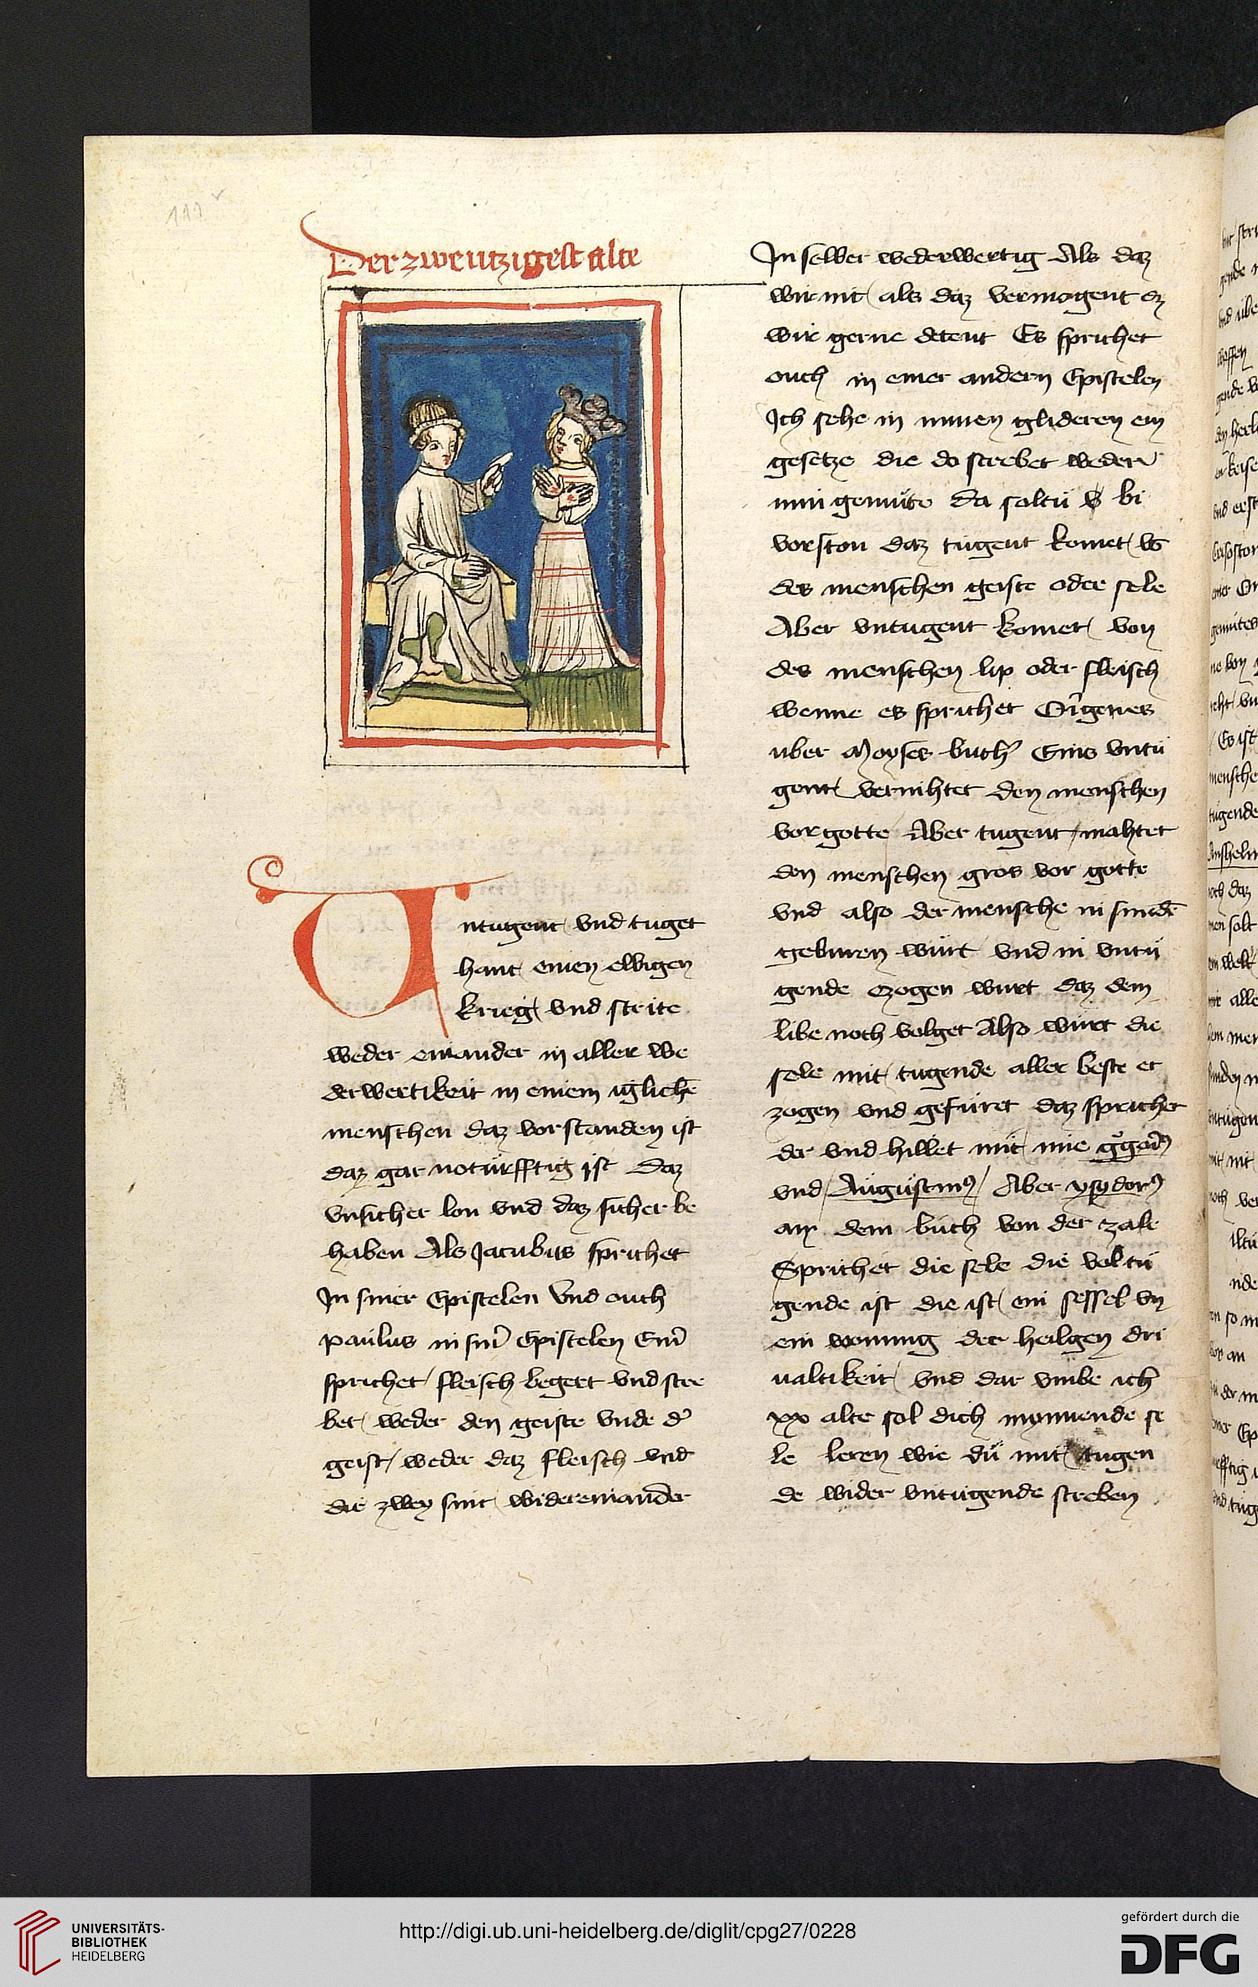 111 v
Der zwentzigest alte
Untugent vnd tuget
hant einen ewigen
krieg vnd strite
weder einander in aller we
derwertikeit in einem iglichē
menschen daz vorstanden ist
daz gar notürfftig ist daz
vnsicher lon vnd daz sicher be
haben Als Jacubus sprichet
In siner Epistelen vnd ouch
paulus in sinr̄ Epistelen Einr̄
sprichet fleisch begert vnd stre
bet weder den geiste vnde d̄
geist weder daz fleisch vnd
die zwey sint widereinander
In selber wederwertig Als daz
wir nit als daz vermogent dz
wir gerne detent Es sprichet
ouch in einer andern Epistelen
Ich sehe in minen glideren ein
gesetze die do strebet weder
min gemüte Da soltu bi
vorston daz tugent komet vs
des menschen geiste oder sele
Aber vntugent komet von
des menschen lip oder fleisch
wenne es sprichet Origenes
uber Moyses buch Eins vntu
gent vernihtet den menschen
vor gotte Aber tugent mahtet
den menschen gros vor gotte
vnd also der mensche in sundē
geburen würt vnd in vntu
gende ezogen wurt daz dem
libe noch volget Also würt die
sele mit tugende aller beste er
zogen vnd gefüret daz sprichet
der vnd hillet mit mie
vnd Augustinus Aber ysydorus
an dem büch von der zale
Sprichet die sele die vol tu
gende ist die ist ein sessel vn
ein wonung der heilgen dri
ualtikeit vnd dar vmbe ich
xx alte sol dich mynnende se
le leren wie dü mit tugen
de wider vntugende streben
UNIVERSITÄTS-
BIBLIOTHEK
HEIDELBERG
http://digi.ub.uni-heidelberg.de/diglit/cpg27/0228
gefördert durch die
DFG